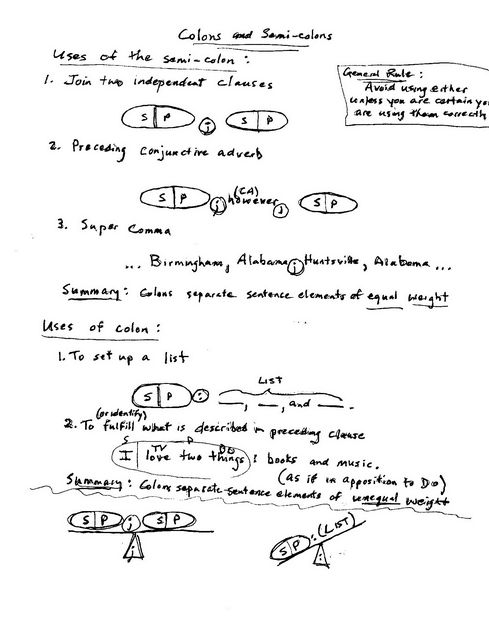 Colons and Semi-colons
Uses of the semi-colon:
General Rule:
Avoid using either
unless you are certain you
are using them correctly
1. Join two independent clauses
S P ; S P
2. Preceding conjunctive adverb
(CA)
S P ; however, S P
3. Super Comma
... Birmingham, Alabama; Huntsville, Alabama ...
Summary: Colons separate sentence elements of equal weight
Uses of colon:
1. To set up a list
LIST
S P : __, __, and __.
(or identify)
2. To fulfill what is described in preceding clause
S P
TV DO
I love two things: books and music.
(as if in apposition to DO)
Summary: Colons separate sentence elements of unequal weight
S P ; S P
S P : (LIST)
; :